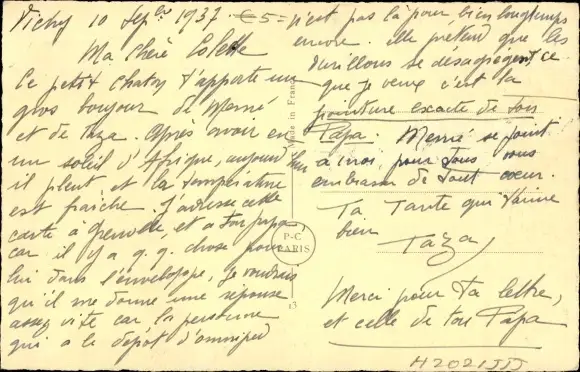 Vichy 10 Sepbre 1937
Ma Chère Colette
Ce petit chaton t'apporte un
gros bonjour de Memé
et de Taza. Après avoir eu
un soleil d'Afrique, aujourd'hui
il pleut et la température
est fraîche. J'adresse cette
carte à Grenoble, et à ton papa,
car il y a q.q. chose pour
lui dans l'enveloppe, je voudrais
qu'il me donne une réponse
assez vite car la personne
qui a le dépôt d'
€5=
n'est pas là pour bien longtemps
encore elle prétend que les
se désagrègent ce
que je veux c'est la
pointure exacte de ton
Papa. Memé se joint
à moi pour tous vous
embrasser de tout coeur.
Ta Tante qui t'aime
bien
Taza
Merci pour ta lettre,
et celle de ton Papa
Made in France
P-C
PARIS
H2021JJJ